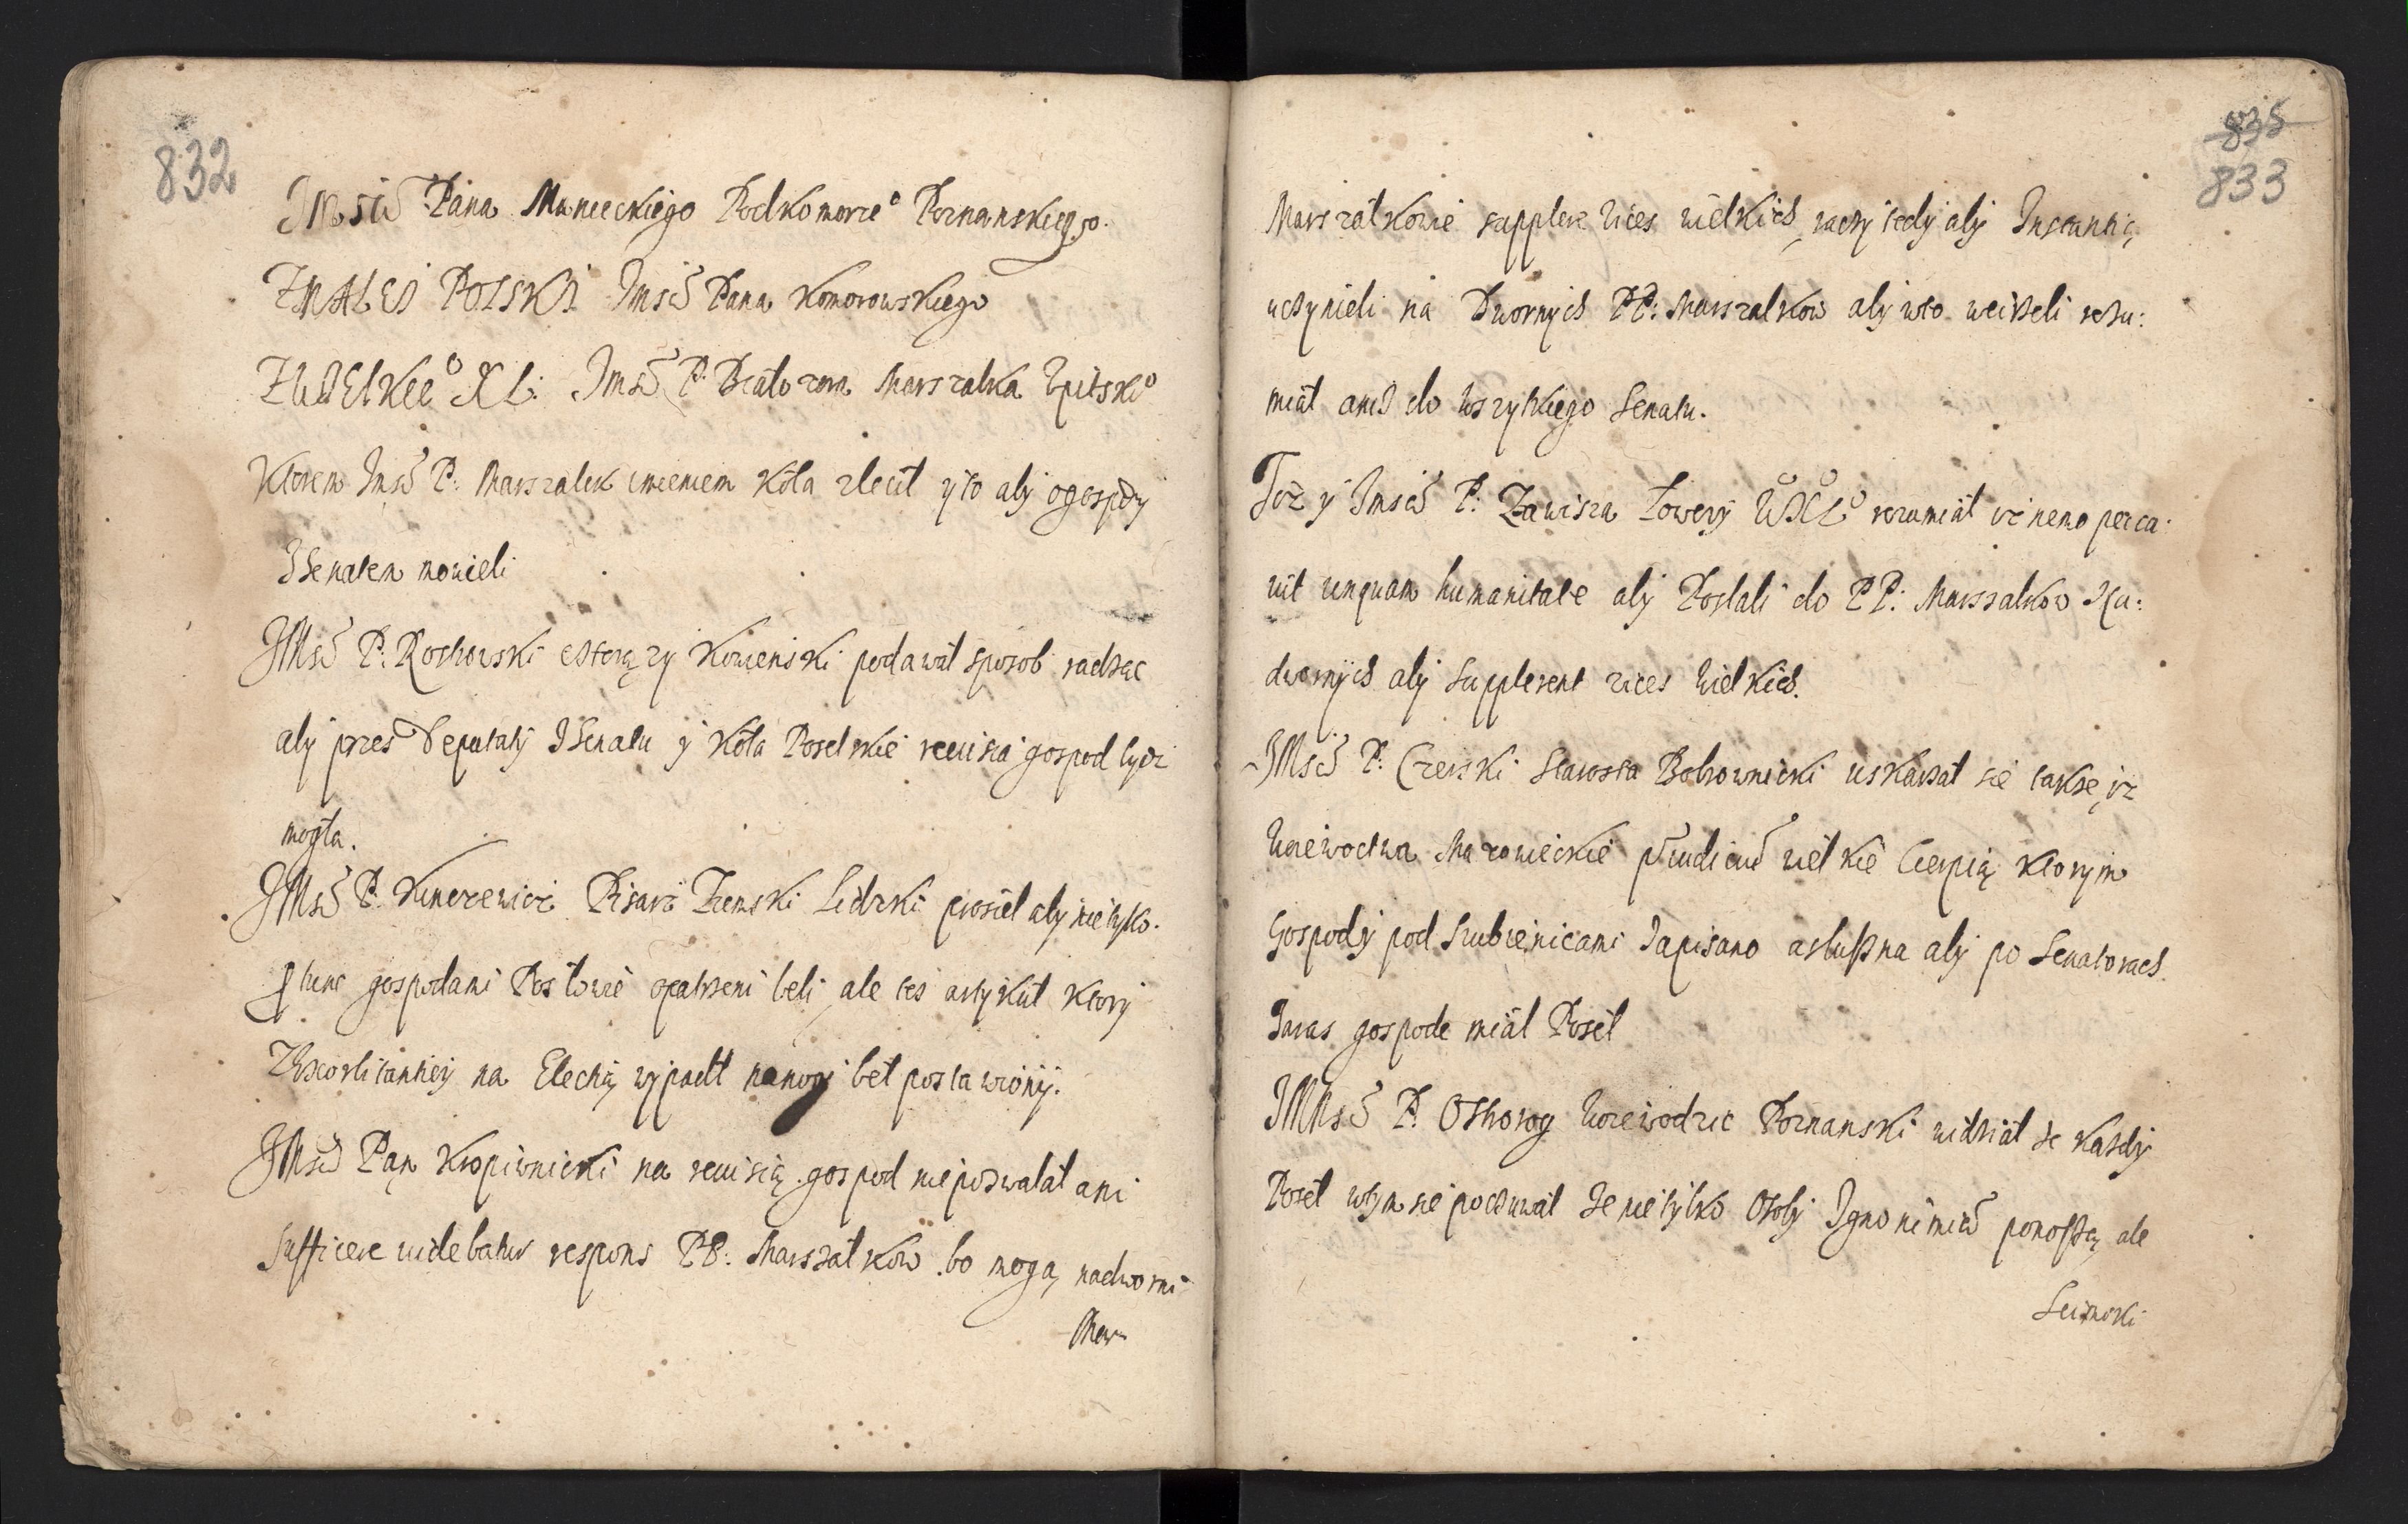 832
JMści Pana Manieckiego Podkomorze° Poznanskiego.
ZMALEJ POLSKI Jmści Pana Komorowskiego
ZWIELKIE° X L: Jmści P. Białozora Marszałka Upitsk°
Ktorem Jmści P: Marszałek imieniem Koła zlecił y to aby o gospody
Z Senatem mowieli
JMści P: Rochowski Chorąży Kowienski podawał sposob radząc
aby przes Deputaty z Senatu y Koła Poselskie rewisia gospod bydz
mogła.
JMści P. Kuncewicz Pisarz Ziemski Lidzki prosiel aby nie tylko
gospodami Posłowie opatrzeni beli, ale tes artykuł ktory
na Elechią wypadł na nogi beł postawiony.
JMści Pan Kropiwnicki na rewisią gospod nie poswalał ani
sufficere videbatur respons PP: Marszałkow bo mogą nadworni
Mar
835
833
Marszałkowie supplere vices wielkich, raczy tedy aby Instantią
uczynieli na Dwornych PP: Marszalkow aby w to weirzeli rozu:
miał anisz do wszytkiego Senatu.
Toż y Jmści P: Zawisza Łowczy W X L° rozumiał iż nemo pecca-
vit unquam humanitate aby Posłali do PP: Marszalkow Na:
dwornych aby supplerent vices wielkich.
JMści P: Czerski Starosta Bobrownicki uskarżał sie także, iż
Woiewodztwa Mazowieckie wielkie cierpią ktorym
Gospody pod Szubienicami zapisano a słuszna aby po Senatorach
zaras gospode miał Poseł
JMści P. Ostrorog Woiewodzic Poznanski widział że każdy
Poseł w tym sie poczuwał że nie tylko Osoby Ignominią ponoszą, ale
Seimiki